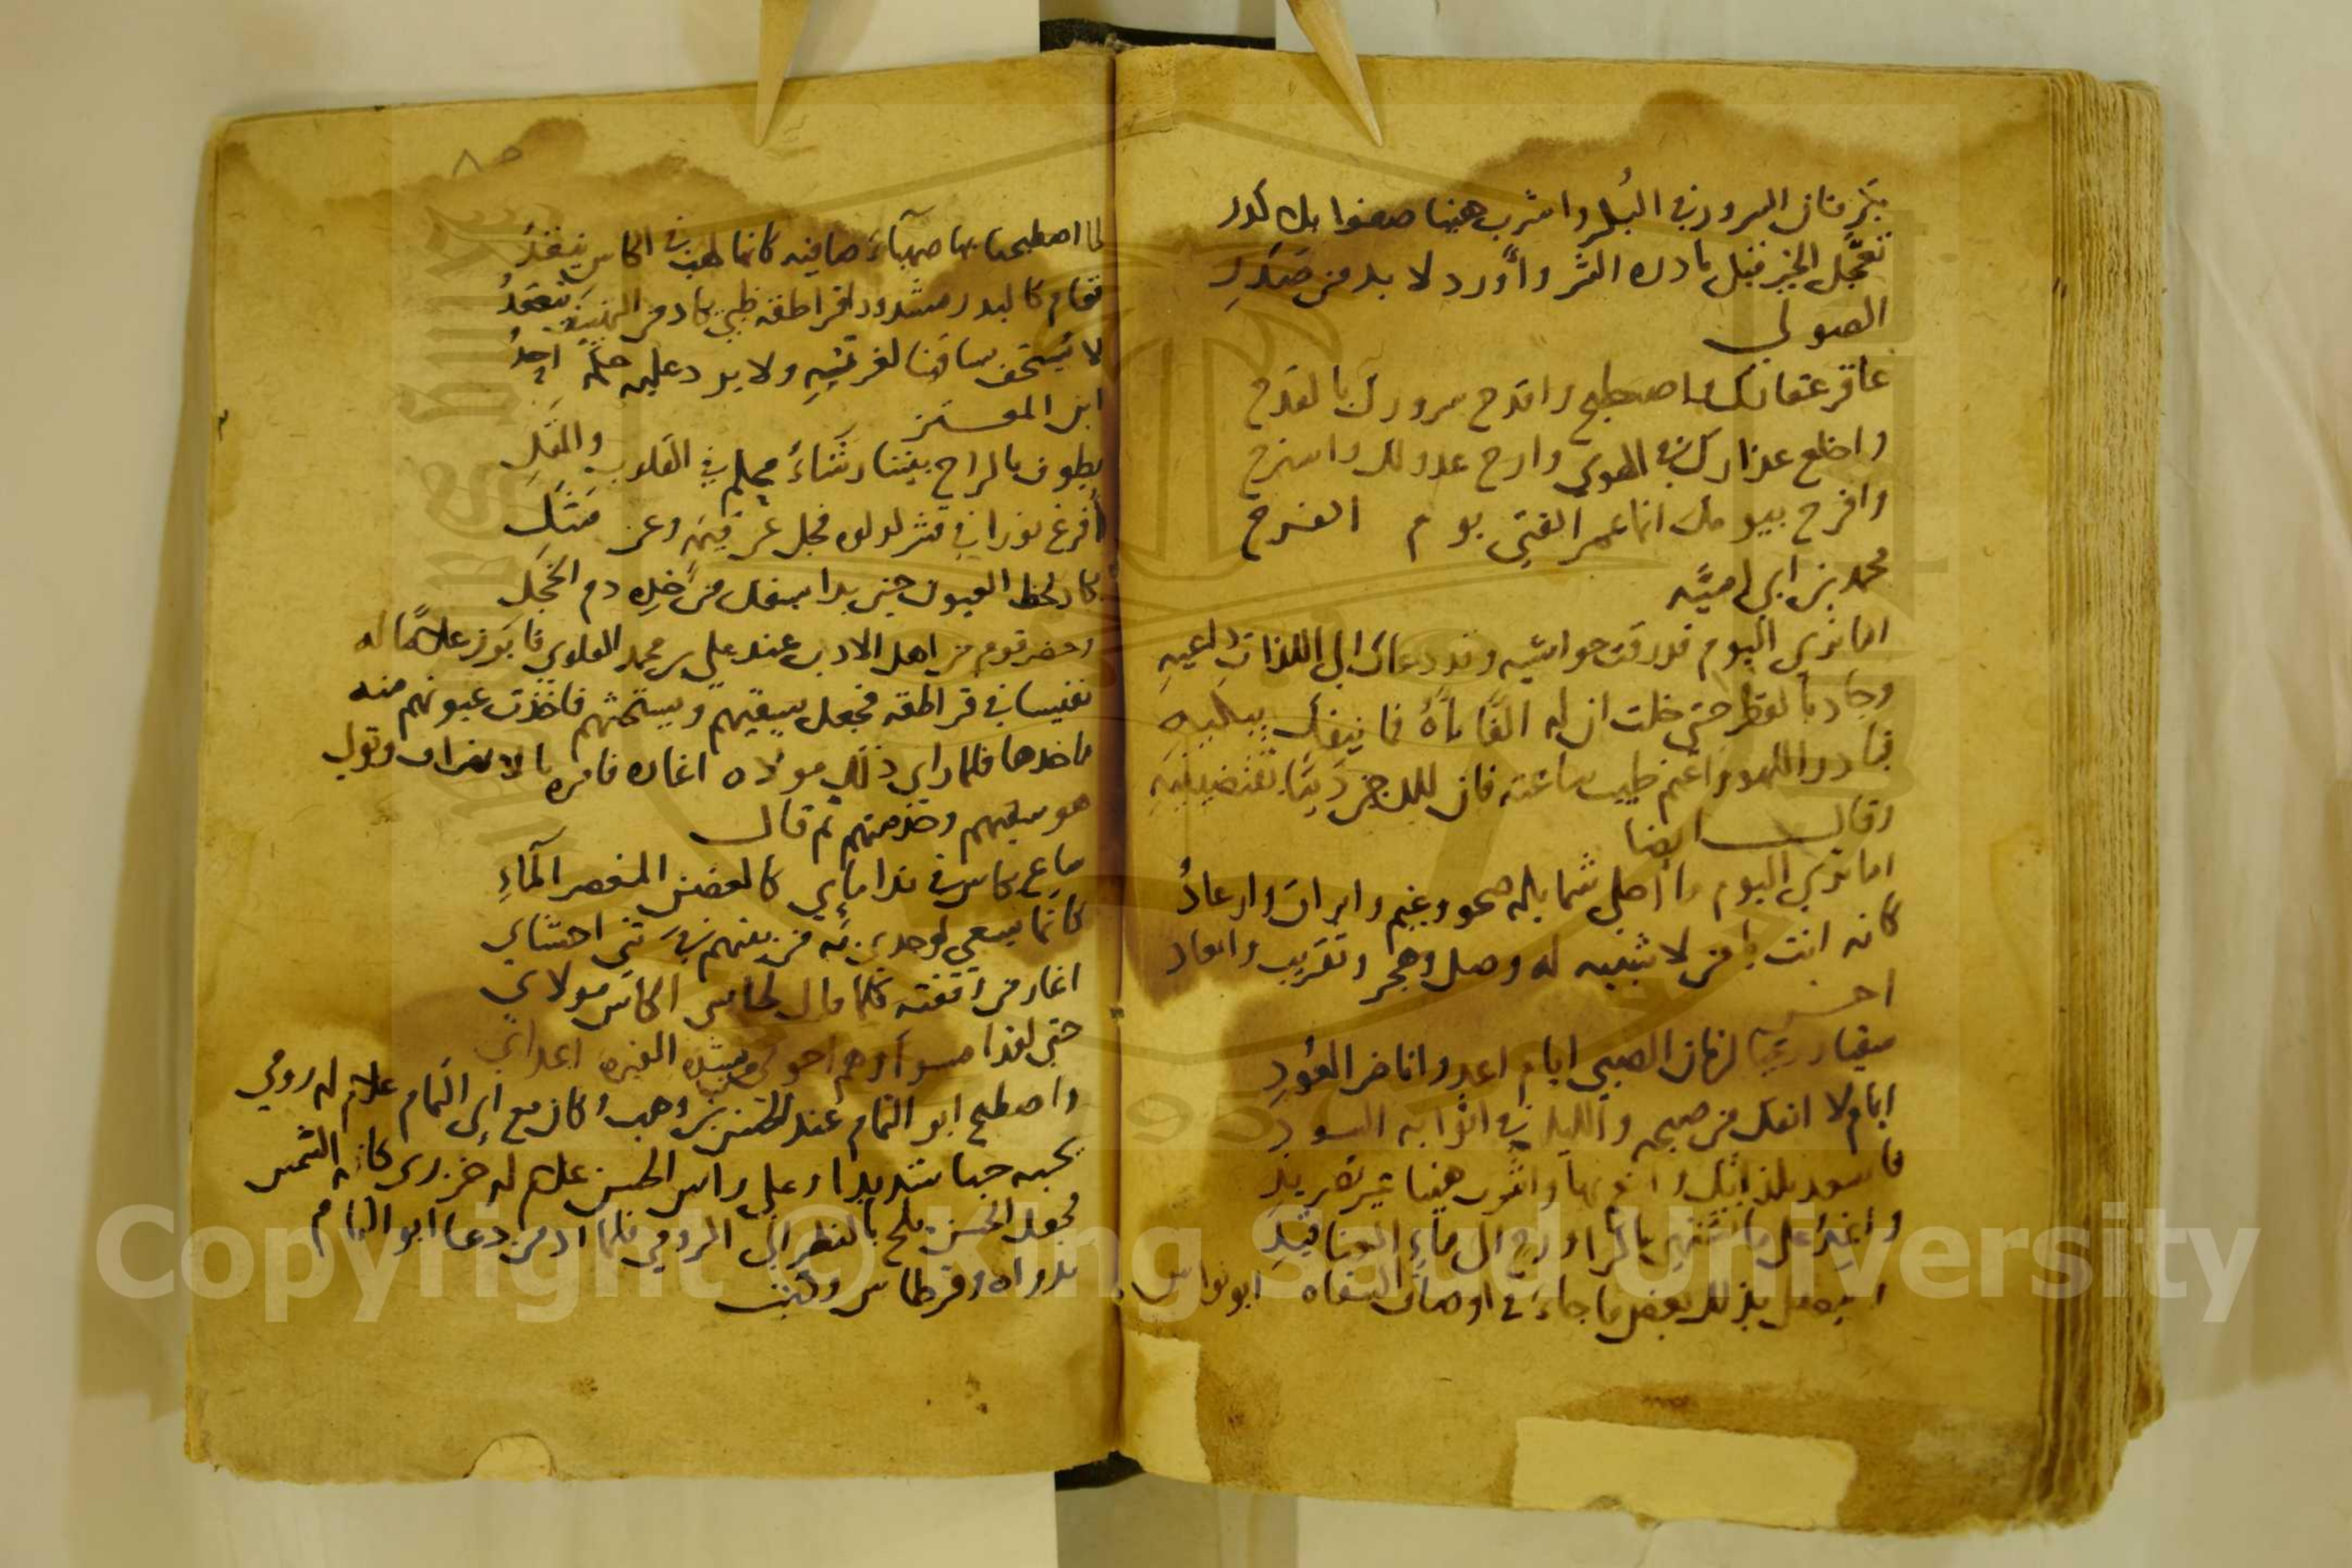 بكر فان السرور في البكر واشرب هنيا صفوا بلا كدر
تعجل الخير قبل بادرة الشر وأورد لا بد من صدر
الصولي
عاقر عقارك واصطبح واقدح سرورك بالقدح
واخلع عذارك في الهوى وارح عذولك واسترح
وافرح بيومك انما عمر الفتى يوم الفرح
محمد بن ابي امية
اما ترى اليوم قد رقت حواشيه وقد دعاك الى اللذات داعيه
وجاد بالقطر حتى خلت ان له الفا نآه فما ينفك يبكيه
فبادر اللهو واغنم طيب ساعته فان لليل دينا تقتضيه
وقال ايضا
اما ترى اليوم ما احلى شمايله صحو وغيم وابراق وارعاد
كانه انت يا من لا شبيه له وصل وهجر وتقريب وابعاد
اخر
سقيا ورعيا لزمان الصبى ايام اغدو انا خضر العود
ايام لا انفك من صبحه والليل في اثوابه السود
فاسعد بلذاتك وانعم بها واشرب هنيا غير تصريد
واغد على ما تشتهي باكرا ورح الى ماء العناقيد
ويتصل بذلك بعض ما جاء في اوصاف السقاه ابو نواس
٨٥
لما اصطبحنا بها صهباء صافيه كانما لهب في الكاس يتقد
فقام كالبدر مشدود قراطقه ظبي يكاد من التهييف ينعقد
لا يستخف ساقينا لغرته ولا يرد عليه حكمه احد
ابن المعتز
يطوف بالراح بيننا رشأ محكم في القلوب والمقل
أفرغ نورا في قشر لولوة فجل عن قيمة وعن مثل
يكاد لحظ العيون حين بدا يسفك من خده دم الخجل
وحضر قوم من اهل الادب عند علي بن محمد العلوي فابرز غلاما له
نفيسا في قراطقه فجعل يسقيهم ويستحثهم فاخذت عيونهم منه
ماخذها فلما راى ذلك مولاه اغاره فامره بالانصراف وتولى
هو سقيهم وخدمتهم ثم قال
ساع بكاس في نداماي كالغصن المغصر الماء
كانما يسعى لوجدي به من بينهم في ثنى احشاي
اغار من رقته كلما قال لحاسي الكاس مولاي
حتى لقد امسوا وهم احوتي من شدة الغيرة اعداي
واصطبح ابو التمام عند الحسن بن وهب وكان مع ابي التمام غلام له رومي
يحبه حبا شديدا وعلى راس الحسن غلام له خزري كانه الشمس
فجعل الحسن يلح بالنظر الى الرومي فلما ادمن دعا ابو التمام
بدواه وقرطاس وكتب
Copyright © King Saud University